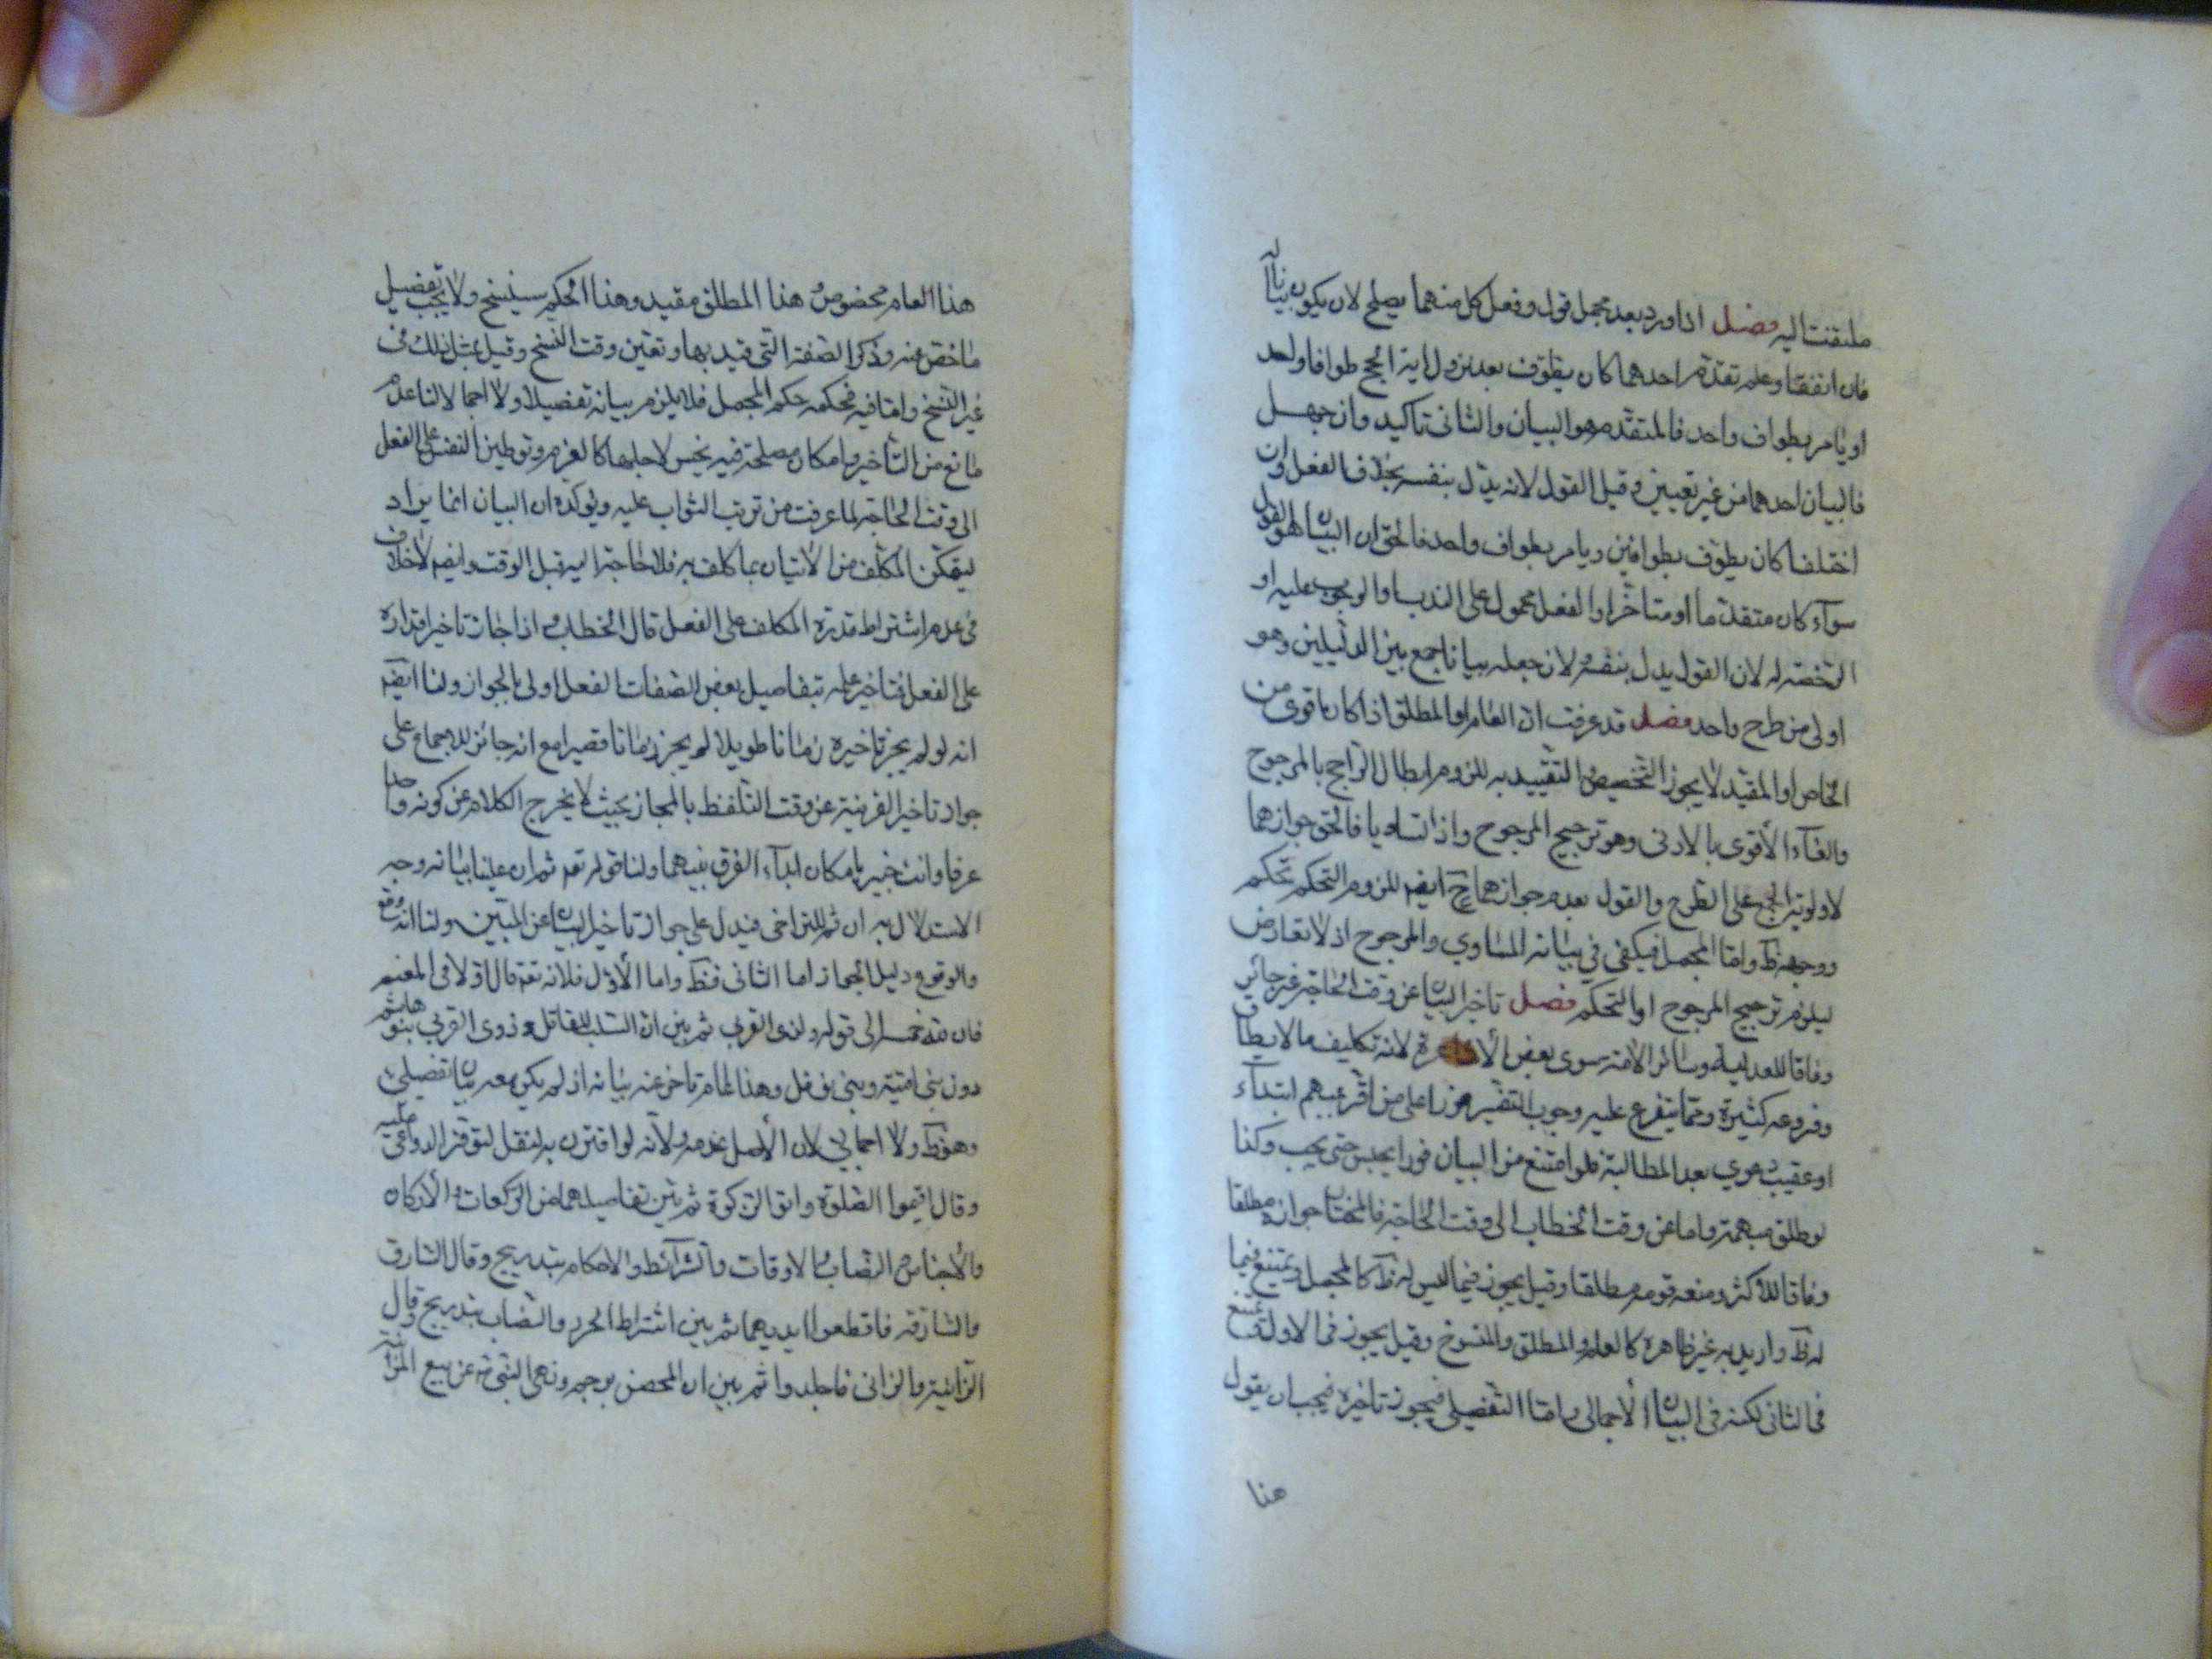 ملتفت اليه فصل اذا ورد بعد مجمل قول وفعل كل منهما يصلح لان يكون بيانا له
فان اتفقا وعلم تقدم احدهما كان يطوف بعد نزول اية الحج طوافا واحد
او يامر بطواف واحد فالمتقدم هو البيان والثانى تاكيد وان جهل
فالبيان احدهما من غير تعيين وقيل القول لانه يدل بنفسه بخلاف الفعل وان
اختلفا كان يطوف بطوافين ويامر بطواف واحد فالحق ان البيان هو القول
سوآء كان متقدما او متاخرا والفعل محمول على الندب او الوجوب عليه او
الرخصة له لان القول يدل بنفسه ولان جعله بيانا جمع بين الدليلين وهو
اولى من طرح واحد فصل قد عرفت ان العام او المطلق اذا كان اقوى من
الخاص او المقيد لا يجوز التخصيص او التقييد به للزوم ابطال الراجح بالمرجوح
والغآء الأقوى بالادنى وهو ترجيح المرجوح واذا تساويا فالحق جوازهما
لاولوية الجمع على الطرح والقول بعدم جوازهما ح ايضم للزوم التحكم تحكم
ووجهه ظ واما المجمل فيكفى في بيانه المساوي والمرجوح اذ لا تعارض
ليلزم ترجيح المرجوح او التحكم فصل تاخير البيان عن وقت الحاجة غير جائز
وفاقا للعدلية وسائر الامة سوى بعض الأشاعرة لانه تكليف ما لا يطاق
وفروعه كثيرة ومما يتفرع عليه وجوب التفسير فورا على من اقر بمبهم ابتدآء
او عقيب دعوي بعد المطالبة فلو امتنع من البيان فورا يحبس حتى يجيب وكذا
لو طلق مبهمة واما عن وقت الخطاب الى وقت الحاجة فالمختار جوازه مطلقا
وفاقا للأكثر ومنعه قوم مطلقا وقيل يجوز فيما ليس له ظ كالمجمل ويمتنع فيما
له ظ واريد به غير ظاهره كالعام والمطلق والمنسوخ وقيل يجوز فى الاول ويمتنع
فى الثانى لكنه فى البيان الأجمالى واما التفصيلى فيجوز تاخيره فيجب ان يقول
هذا
هذا العام مخصوص هذا المطلق مقيد وهذا الحكم سينسخ ولا يجب تفصيل
ما خص منه وذكر الصفة التى قيد بها وتعين وقت النسخ وقيل بمثل ذلك فى
غير النسخ واما فيه فحكمه حكم المجمل فلا يلزم بيانه تفصيلا ولا اجمالا لنا عدم
مانع من التأخير وامكان مصلحة فيه يحسن لاجلها كالعزم وتوطين النفس على الفعل
الى وقت الحاجة لما عرفت من ترتب الثواب عليه ويؤكده ان البيان انما يراد
ليتمكن المكلف من الأتيان بما كلف به فلا حاجة اليه قبل الوقت وايضم لا خلاف
فى عدم اشتراط قدرة المكلف على الفعل قال الخطاب اذا جاز تاخير اقداره
على الفعل فتاخير علمه بتفاصيل بعض الصفات الفعل اولى بالجواز ولنا ايضم
انه لو لم يجز تاخيره زمانا طويلا لم يجز زمانا قصيرا مع انه جائز للاجماع على
جواز تاخير القرينة عن وقت التلفظ بالمجاز بحيث لا يخرج الكلام عن كونه واحدا
عرفا وانت خبير بامكان ابدآء الفرق بينهما ولنا قوله تعم ثم ان علينا بيانه وجه
الاستدلال به ان ثم للتراخى فيدل على جواز تاخير البيان عن المبين ولنا انه وقع
والوقوع دليل الجواز اما الثانى فظ واما الأول فلانه تعم قال اولا فى المغنم
فان لله خمسه الى قوله ولذى القربى ثم بين ان السلب للقاتل وذوى القربى بنو هاشم
دون بنى امية وبنى نوفل وهذا عام تاخر عنه بيانه اذ لم يكن معه بيان تفصيلى
وهو ظ ولا اجمالى لان الأصل عدمه ولأنه لو اقترن به لنقل لتوفر الدواعى عليه
وقال اقيموا الصلوة واتوا الزكوة ثم بين تفاصيلهما من الركعات والأركان
والأجناس والنصاب والاوقات والشرآئط والاحكام بتدريج وقال السارق
والسارقة فاقطعوا ايديهما ثم بين اشتراط الحرز والنصاب بتدريج وقال
الزانية والزانى فاجلدوا ثم بين ان المحصن يرجم ونهى النبى ص عن بيع المزابنة